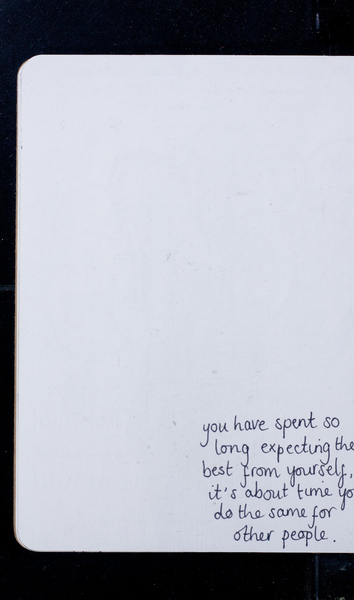 you have spent so
long expecting the
best from yourself,
it's about time yo
do the same for
other people.